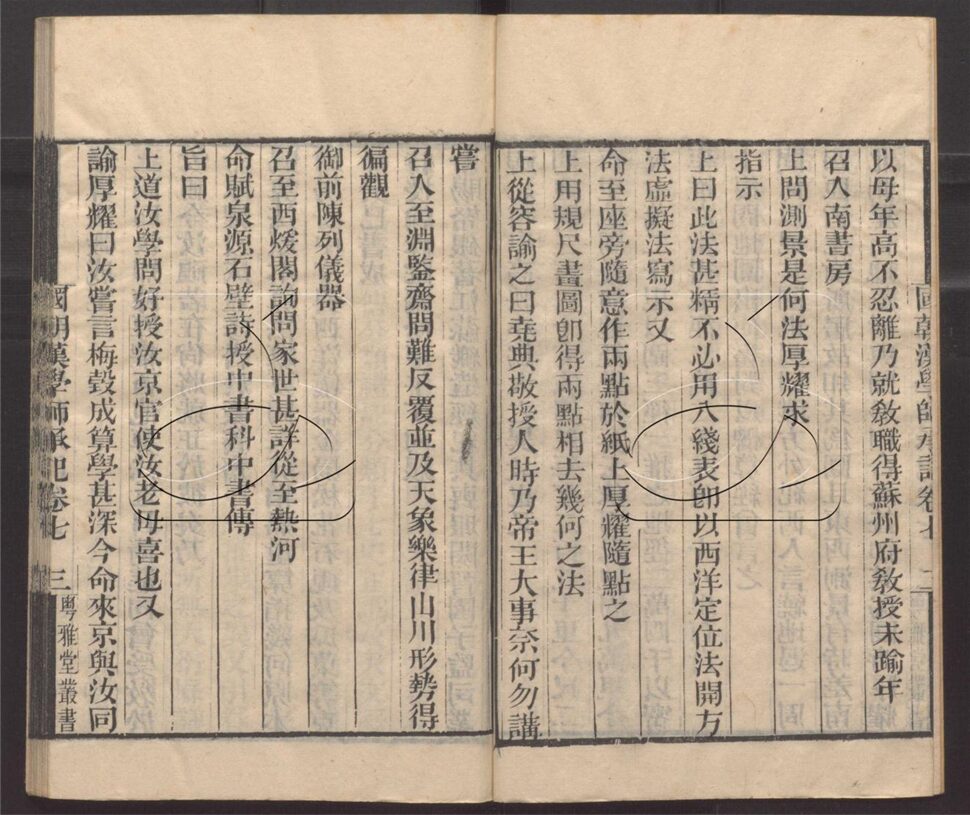 以母年高不忍離乃就敎職得蘇州府敎授未踰年
召入南書房
上問測景是何法厚耀求
指示
上曰此法甚精不必用八綫表卽以西洋定位法開方
法虛擬法寫示又
命至座旁隨意作兩點於紙上厚耀隨點之
上用規尺畫圖卽得兩點相去幾何之法
上從容諭之曰堯典敬授人時乃帝王大事奈何勿講
國朝漢學師承記卷七 二
嘗
召入至淵鑒齋問難反覆並及天象樂律山川形勢得
徧觀
御前陳列儀器
召至西煖閣詢問家世甚詳從至熱河
命賦泉源石壁詩授中書科中書傳
旨曰
上道汝學問好授汝京官使汝老母喜也又
諭厚耀曰汝嘗言梅瑴成算學甚深今命來京與汝同
國朝漢學師承記卷七 三 粵雅堂叢書